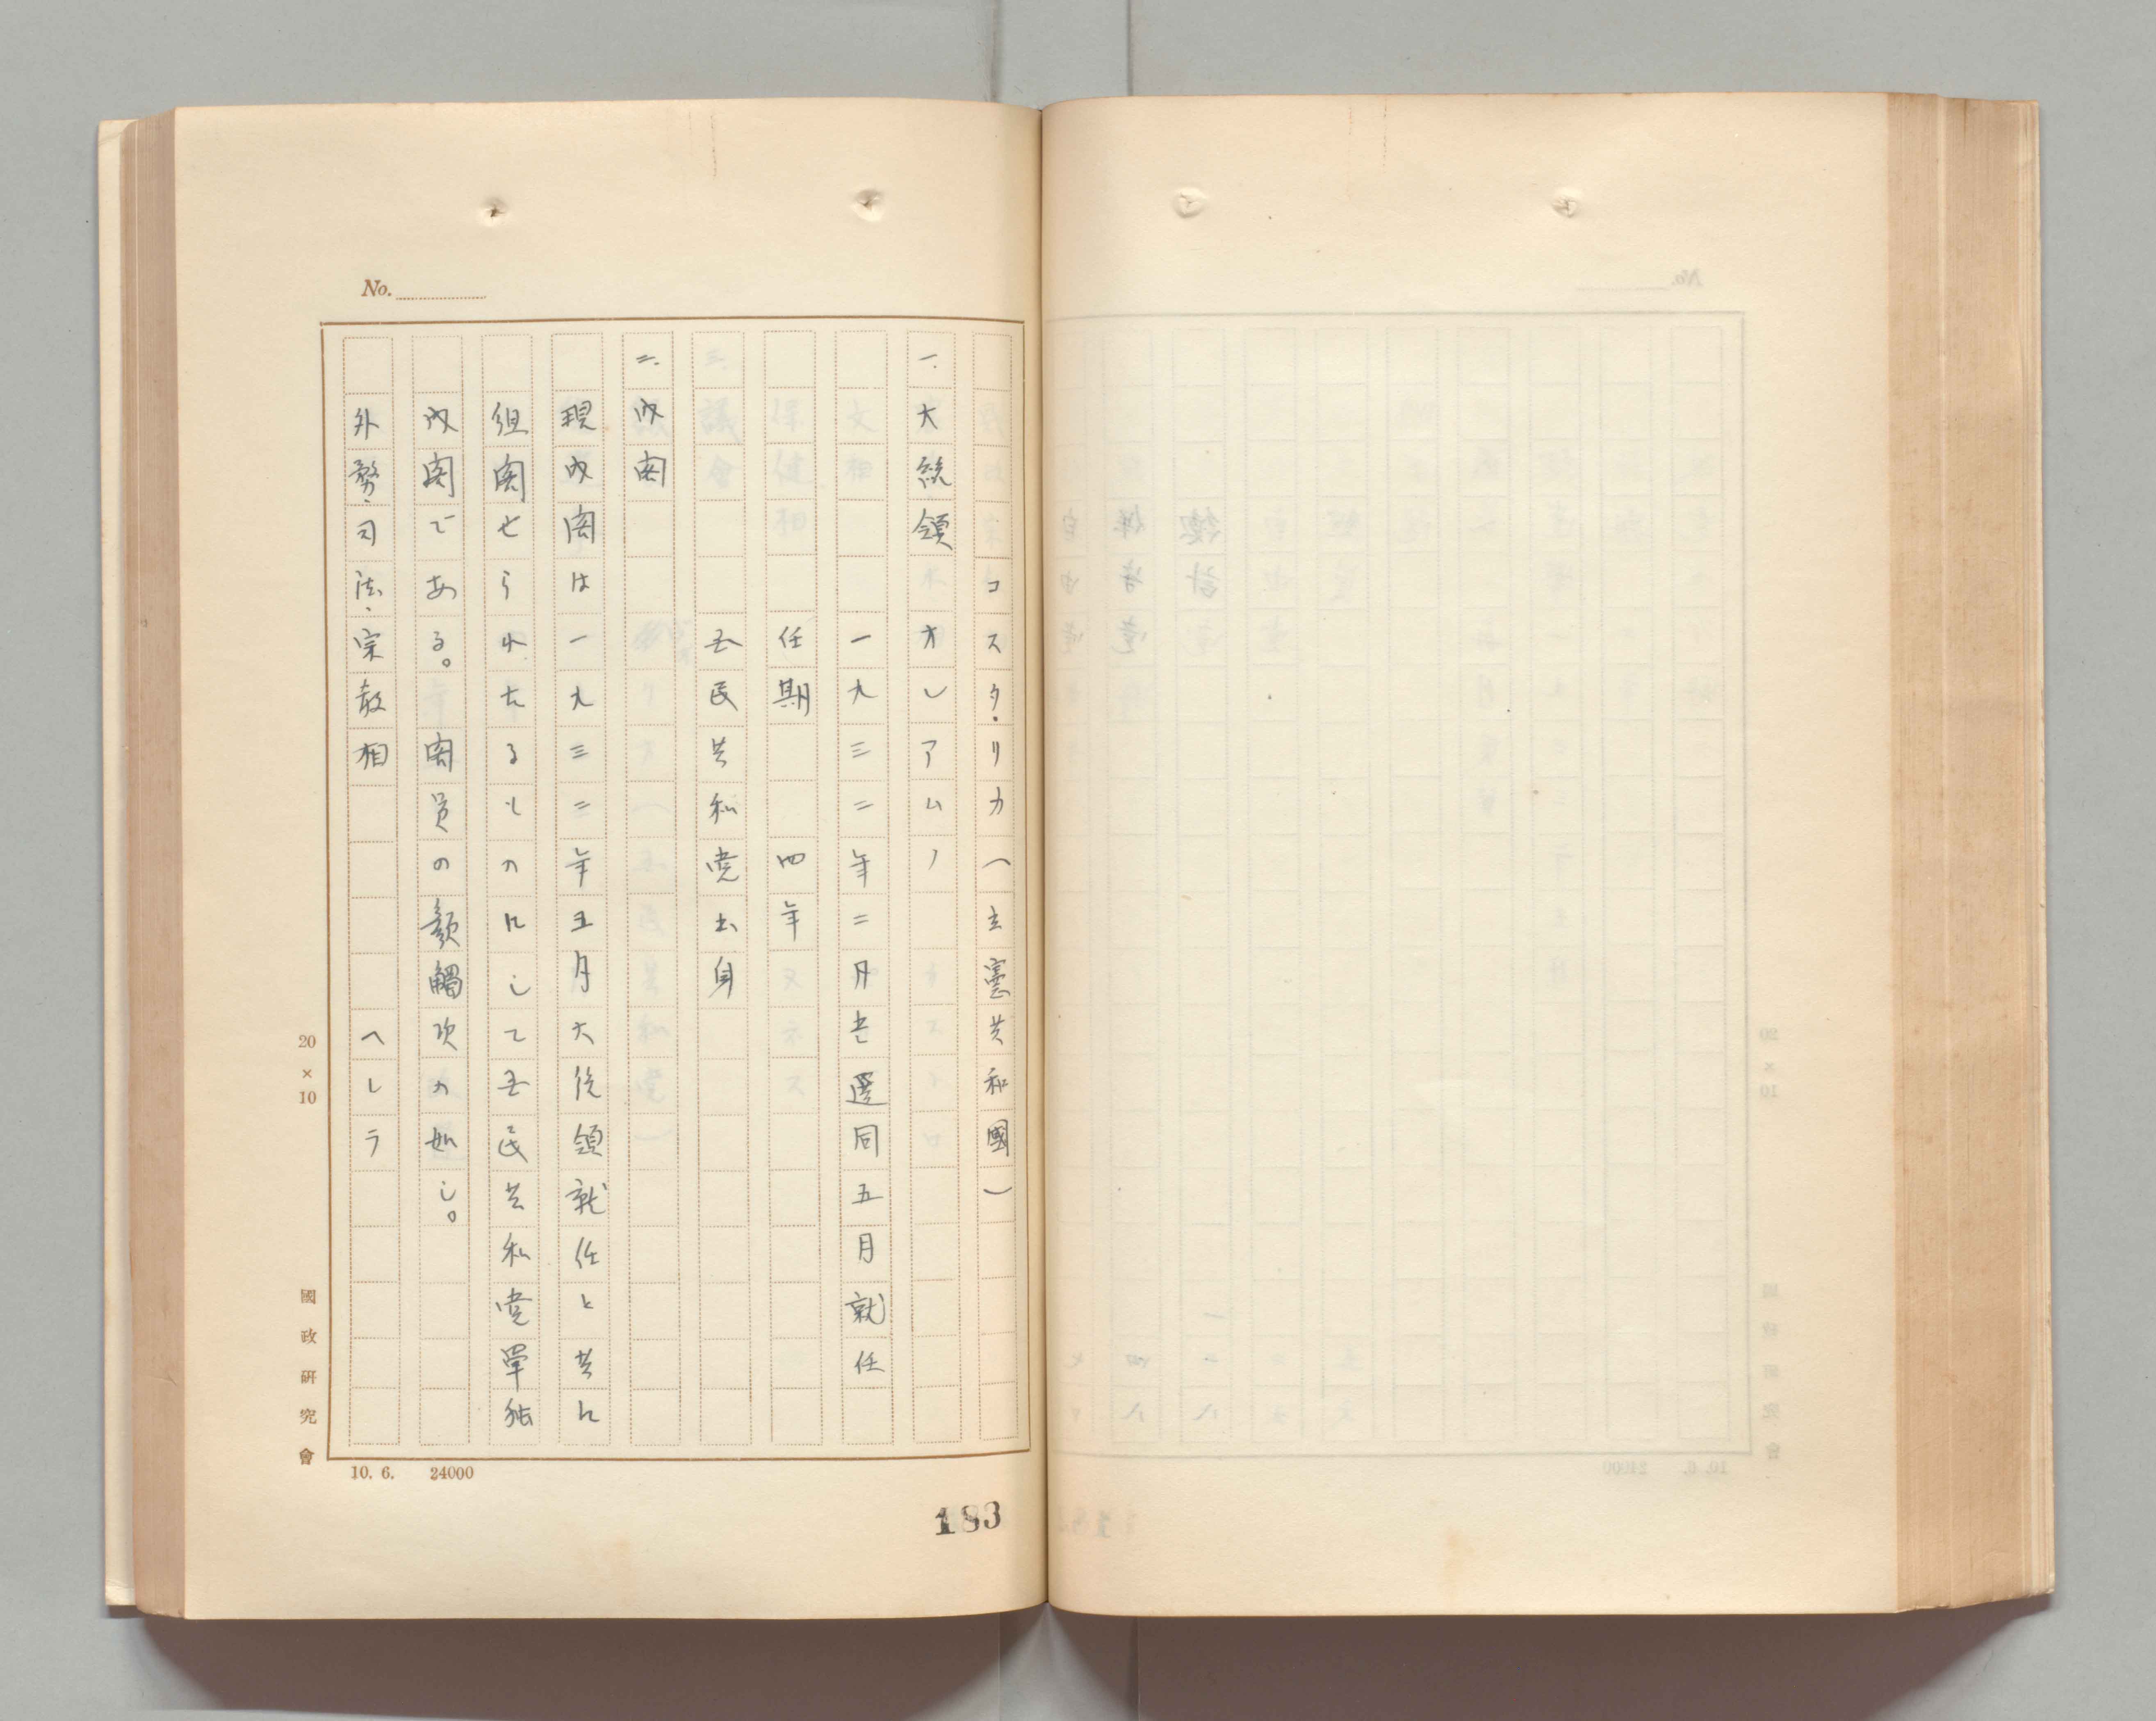 No.
コスタ・リカ(立憲共和國)
一.大統領 オレアムノ
一九三二年二月当選同五月就任
任期 四年
国民共和党出身
二.内閣
現内閣は一九三二年五月大統領就任と共に
組閣せられたるものにして国民共和党單独
内閣である。閣員の顔觸次の如し。
外務、司法、宗教相 ヘレラ
20×10
國政研究會
10. 6. 24000
183